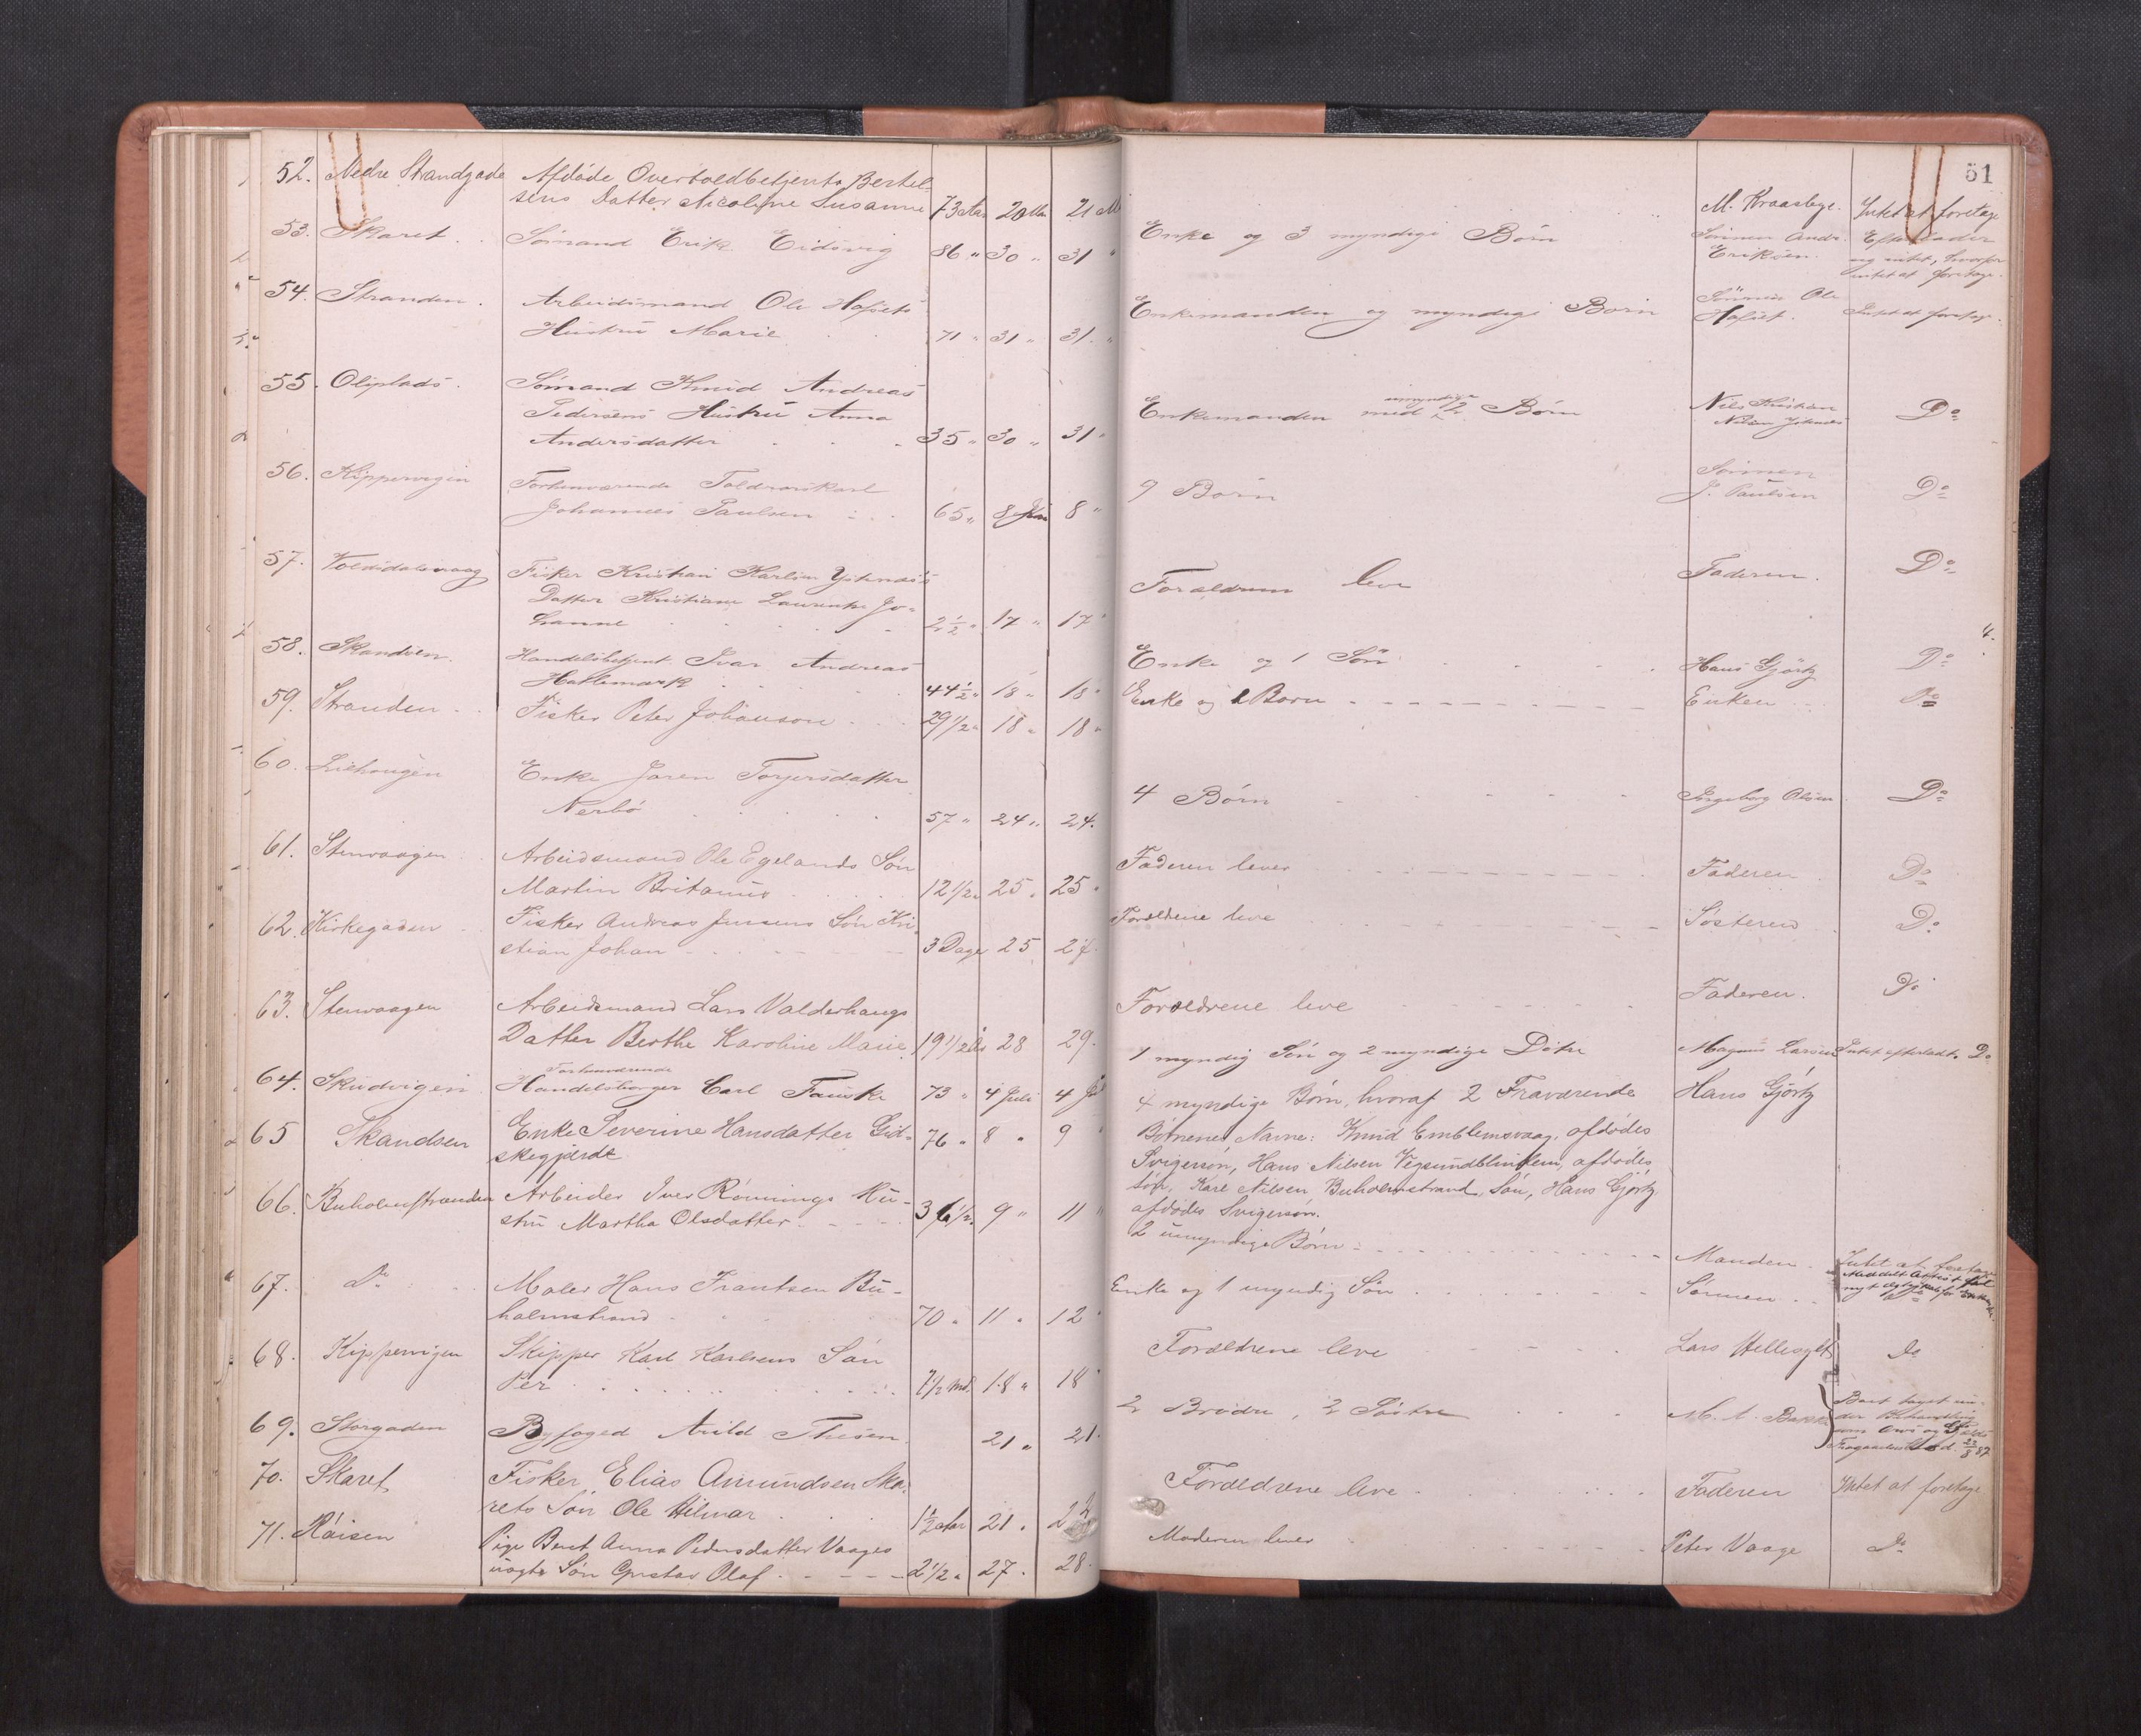 52. Nedre Strandgade Afdøde Overtoldbetjents Bertel-
sens Datter Nicolyne Susanne 73 Aar 20 Mai 21 M
53. Skaret. Sömand Erik Eidsvig 86 " 30 " 31 "
54. Stranden. Arbeidsmand Ole Hofsets
Hustrú Marie 71 " 31 " 31. "
55. Olsplads. Sömand Knud Andreas
Pedersens Hustrú Anna
Andersdatter 35 " 30 " 31 "
56. Kippervigen Forhenværende Toldrorskarl
Johannes Paulsen 65 " 8 Juni 8 "
57. Voldsdalsvaag Fisker Kristian Karlsen
Datter Kristiane Laurentse Jo-
hanne 2 1/2 " 17 " 17 "
58. Skandsen. Handelsbetjent Ivar Andreas
Hatlemark 44 1/2 " 18 " 18 "
59. Stranden Fisker Peter Johanson 29 1/2 " 18 " 18 "
60. Liehaugen Enke Joren Torgersdatter
Nerbö 57 " 24 " 24.
61. Stenvaagen Arbeidsmand Ole Egelands Sön
Martin Britanus 12 1/2 " 25 " 25 "
62. Kirkegaden Fisker Andreas Jensens Sön Kri-
stian Johan 3 Dage 25 27.
63. Stenvaagen Arbeidsmand Lars Valderhaugs
Datter Berthe Karoline Marie 19 1/2 Ar 28 29.
64. Skudvigen Forhenværende
Handelsborger Carl Fauske 73 " 4 Juli 4 Ju
65 Skandsen Enke Severine Hansdatter Gid-
skegjerde 76 " 8 " 9 "
66. Buholmstranden Arbeider Iver Rönnings Hu-
strú Martha Olsdatter 36 1/2 " 9 " 11 "
67. Do Maler Hans Frantsen Bú-
holmstrand 70 " 11 " 12 "
68. Kippervigen Skipper Karl Karlsens Sön
Per 7 1/2 Md. 18 " 18 "
69. Storgaden Byfoged Arild Thesen 21 " 21.
70. Skaret Fisker Elias Amundsen Ska-
rets Sön Ole Hilmar 1 1/2 Aar 21 " 22
71. Röisen Pige Berit Anna Pedersdatter Vaages
uægte Sön Gustav Olaf 2 1/2 " 27. 28.
51
M. Kraasbye. Intet at foretage
Enke og 3 myndige Börn Sönnen Andr. Eriksen. Efterlader
sig intet, hvorfor
intet at foretage.
Enkemanden og myndige Börn Sönnen Ole
Hofset. Intet at foretage.
Enkemanden med umyndige 2 Börn Nils Kristian
Do
9 Börn Sönnen
J. Paulsen Do
Forældrene leve Faderen. Do
4.
Enke og 1 Sön Hans Gjörtz Do
Enke og Börn Enken Do
4 Börn Ingeborg Olsen Do
Faderen lever Faderen Do
Forældrene leve Søsteren Do
Forældrene leve Faderen. Do
1 myndig Sön og 2 myndige Dötre Magnus Larsen Intet efterladt. Do
4 myndige Börn, hvoraf 2 Fraværende Hans Gjörtz
Börnenes Navne: Knud Emblemsvaag, afdødes
Svigersön, Hans Nilsen Vegsundblinkem, afdødes
sön, Karl Nilsen Buholmstrand, Sön, Hans Gjörtz
afdødes Svigersön.
2 umyndige Börn Manden Intet at foretage
Enke og 1 myndig Sön Sönnen
Forældrene leve Lars Hellesylt Do
2 Brödre, 2 Söstre M. A. Bakke Boet taget un-
der Behandling
Forældrene leve Faderen Intet at foretage
Moderen lever Peter Vaage Do